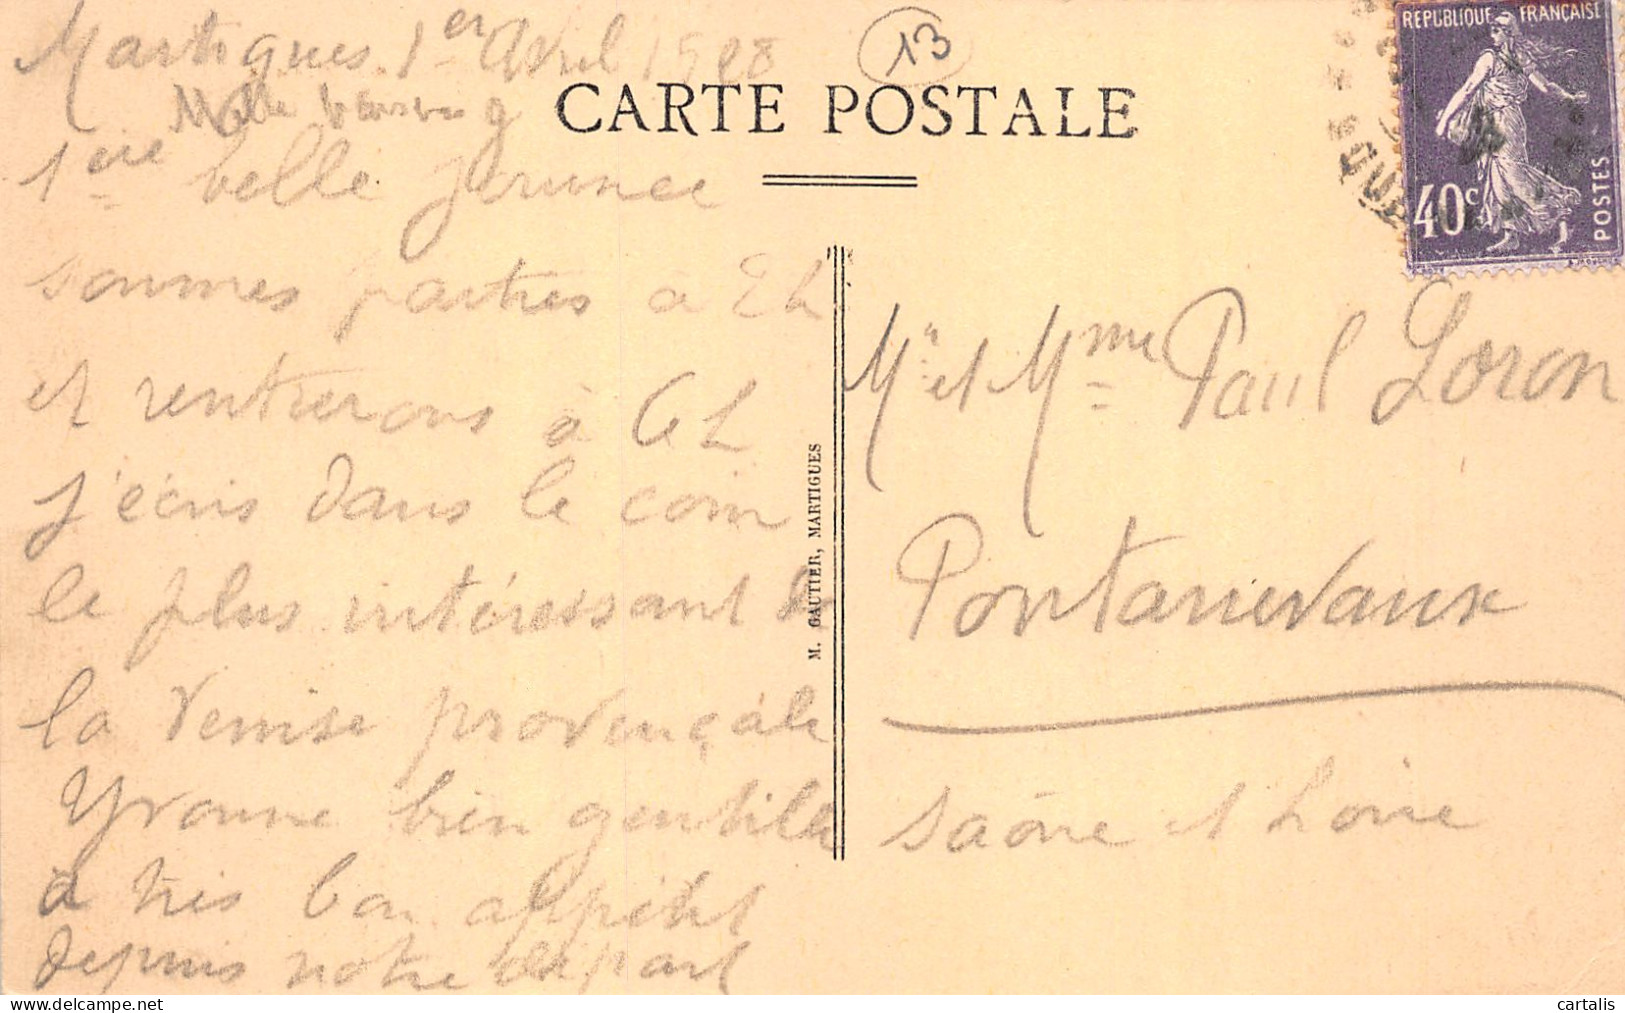 Martigues 1er Avril 1928
13
RÉPUBLIQUE FRANÇAISE
40c
POSTES
CARTE POSTALE
Melle
1ère belle journée
sommes parties à 2h
et rentrerons à 6h
j'écris dans le coin
le plus intéressant de
la Venise provençale
Yvonne bien gentille
a très bon appétit
depuis notre départ
M. GAUTIER, MARTIGUES
Mr et Mme Paul Loron
Pontanevaux
Saône et Loire
cartalis